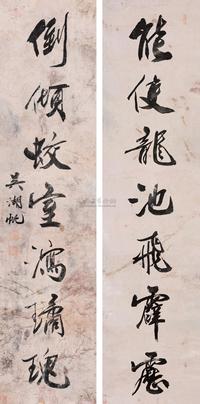 能使龍池飛霹靂
倒傾蛟室瀉瓊瑰
吳湖帆